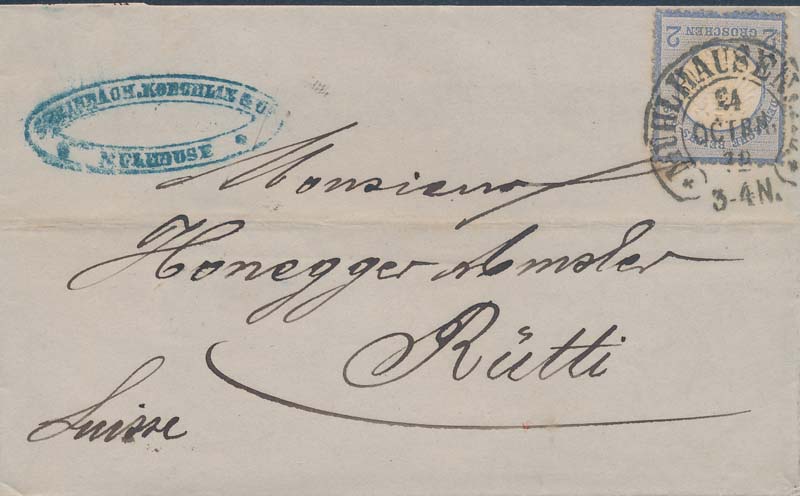 KOECHLIN & Cie
MULHOUSE
2 GROSCHEN 2
MÜHLHAUSEN
24
OCTBR.
72
3-4N.
Monsieur
Honegger Amsler
Rütti
Suisse